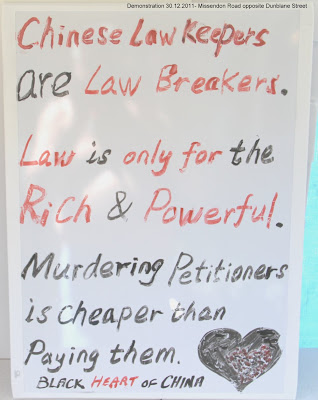 Demonstration 30.12.2011- Missendon Road opposite Dunblane Street
Chinese Law Keepers
are Law Breakers.
Law is only for the
Rich & Powerful.
Murdering Petitioners
is cheaper than
Paying them.
BLACK HEART OF CHINA